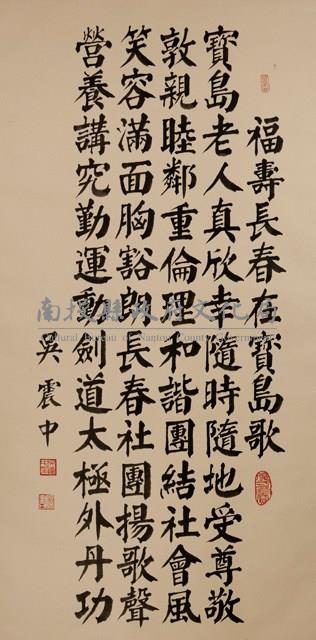 福壽長春在寶島歌
寶島老人真欣幸隨時隨地受尊敬
敦親睦鄰重倫理和諧團結社會風
笑容滿面胸豁朗長春社團揚歌聲
營養講究勤運動劍道太極外丹功
吳震中
南投縣政府文化局
Cultural Bureau of Nantou County Government